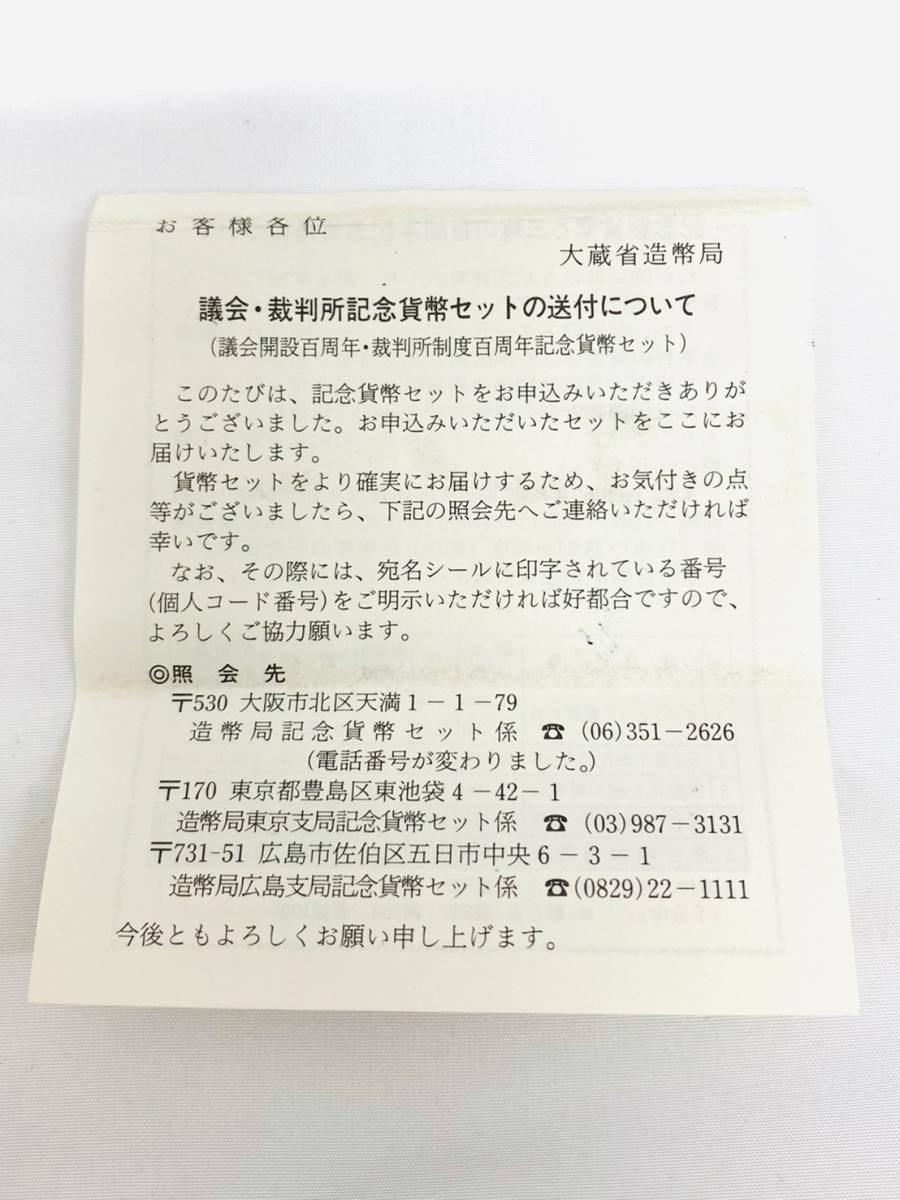 お客様各位
大蔵省造幣局
議会・裁判所記念貨幣セットの送付について
(議会開設百周年・裁判所制度百周年記念貨幣セット)
このたびは、記念貨幣セットをお申込みいただきありが
とうございました。お申込みいただいたセットをここにお
届けいたします。
貨幣セットをより確実にお届けするため、お気付きの点
等がございましたら、下記の照会先へご連絡いただければ
幸いです。
なお、その際には、宛名シールに印字されている番号
(個人コード番号)をご明示いただければ好都合ですので、
よろしくご協力願います。
◎照会先
〒530 大阪市北区天満1-1-79
造幣局記念貨幣セット係 ☎ (06)351-2626
(電話番号が変わりました。)
〒170 東京都豊島区東池袋4-42-1
造幣局東京支局記念貨幣セット係 ☎ (03)987-3131
〒731-51 広島市佐伯区五日市中央6-3-1
造幣局広島支局記念貨幣セット係 ☎(0829)22-1111
今後ともよろしくお願い申し上げます。